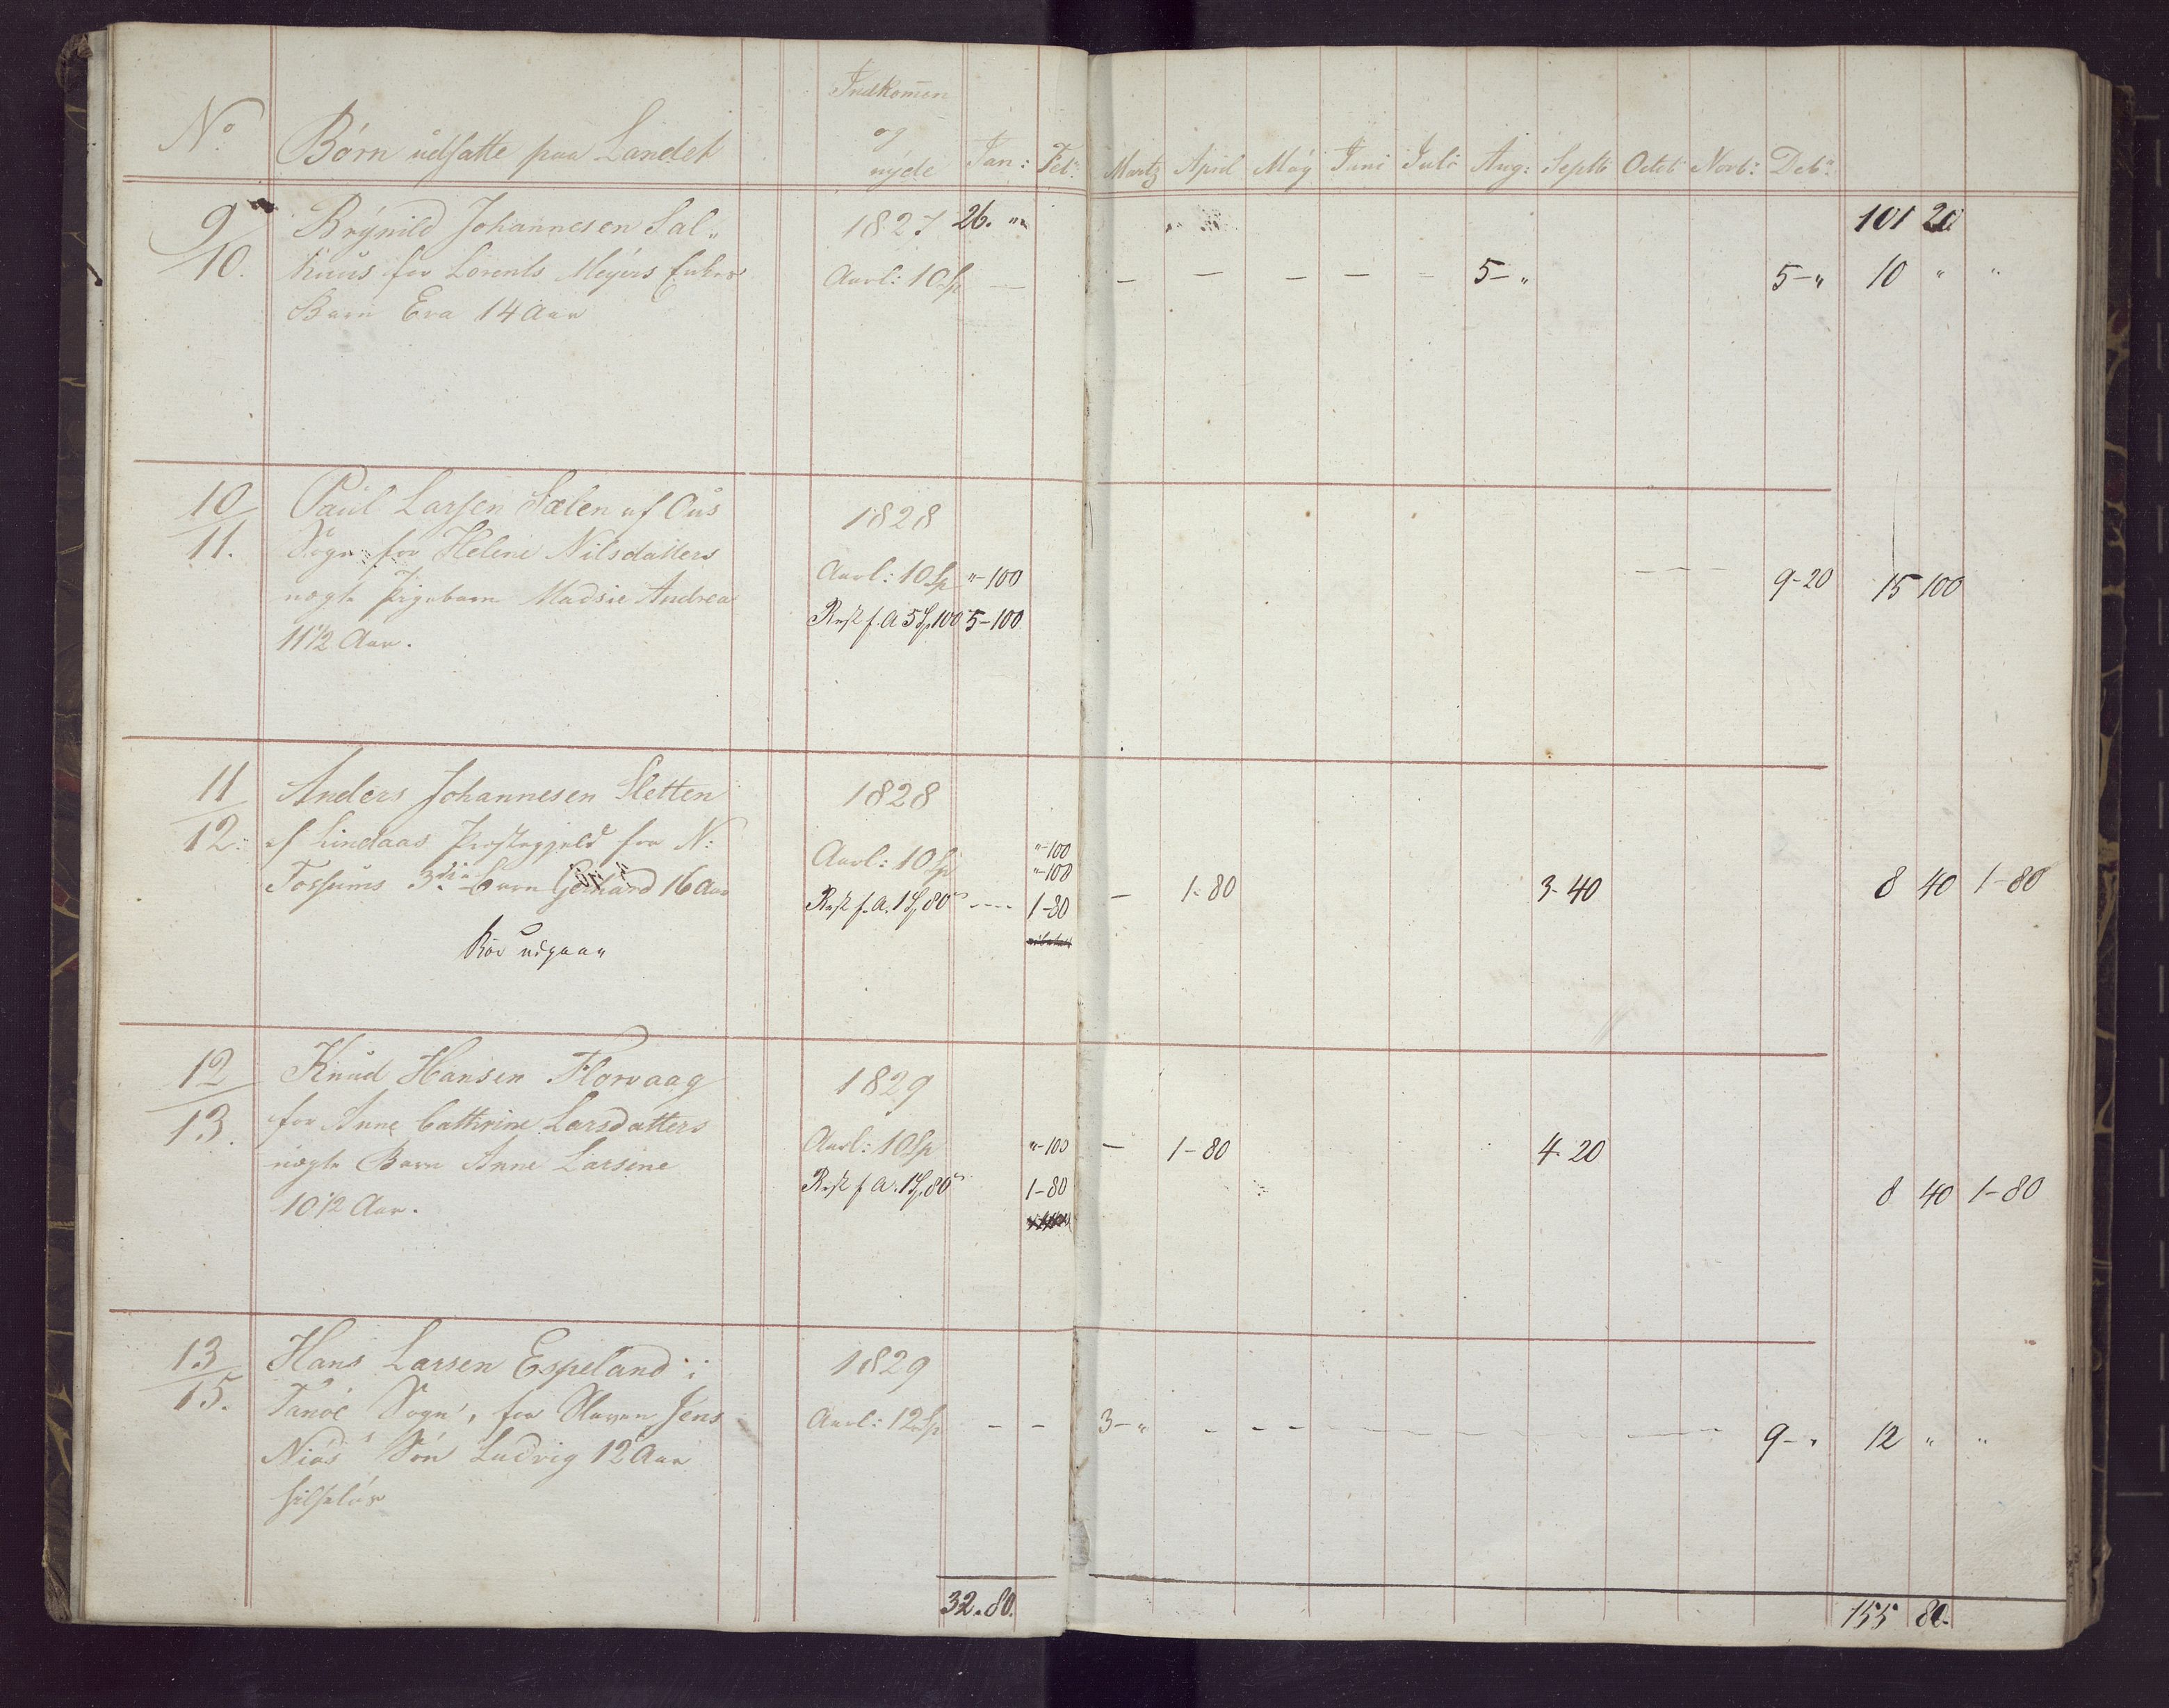 Indkomēn
No. Börn udsatte paa Landet og nÿde Jan: Feb: Martz April Maÿ Juni Juli Aug: Septb: Octob: Novb: Decb:
9/10. Brÿnild Johannesen Sal„ 1827 26. „ 101 20
huus for Lorents Meÿers Enkes Aarl: 10 Sp — — — — — — 5–„ 5–„ 10 „ „
Barn Eva 14 Aar
10/11. Paul Larsen Sælen af Ous 1828
Sogn for Helene Nilsdatters
uægte Pigebarn Madsie Andrea Aarl: 10 Sp „–100 — — — 9–20 15 100
11½ Aar. Rest f. A 5 Sp 100 5–100
11/12. Anders Johannesen Sletten 1828
af Lindaas Præstegjeld for N: Aarl: 10 Sp „–100
„–100
Tossums 3die Barn Gerhard 16 Aar Rest f. A. 1 Sp 80 s ---- 1–80 — 1–80 3–40 8 40 1–80
Bör udgaae
12/13. Knud Hansen Florvaag 1829
for Anne Cathrine Larsdatters Aarl: 10 Sp „–100 — 1–80 4–20
uægte Barn Anne Larsine Rest f. A. 1 Sp 80 s 1–80 8 40 1–80
10½ Aar.
13/15. Hans Larsen Espeland i 1829
Fanöe Sogn, for Slaven Jens Aarl: 12 Sp — — 3–„ — — — — — — — — 9–„ 12 „ „
Niös Sön Ludvig 12 Aar
hilselös
32. 80. 155 80.